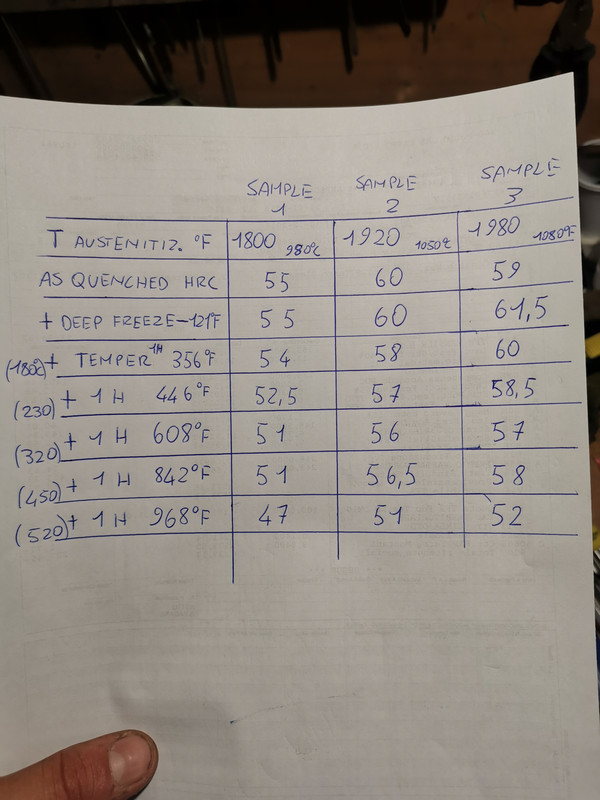 SAMPLE 1 SAMPLE 2 SAMPLE 3
T AUSTENITIZ. °F 1800 980°C 1920 1050°C 1980 1080°F
AS QUENCHED HRC 55 60 59
+ DEEP FREEZE -121°F 55 60 61,5
(180°C) + TEMPER 1H 356°F 54 58 60
(230) + 1 H 446°F 52,5 57 58,5
(320) + 1 H 608°F 51 56 57
(450) + 1 H 842°F 51 56,5 58
(520) + 1 H 968°F 47 51 52